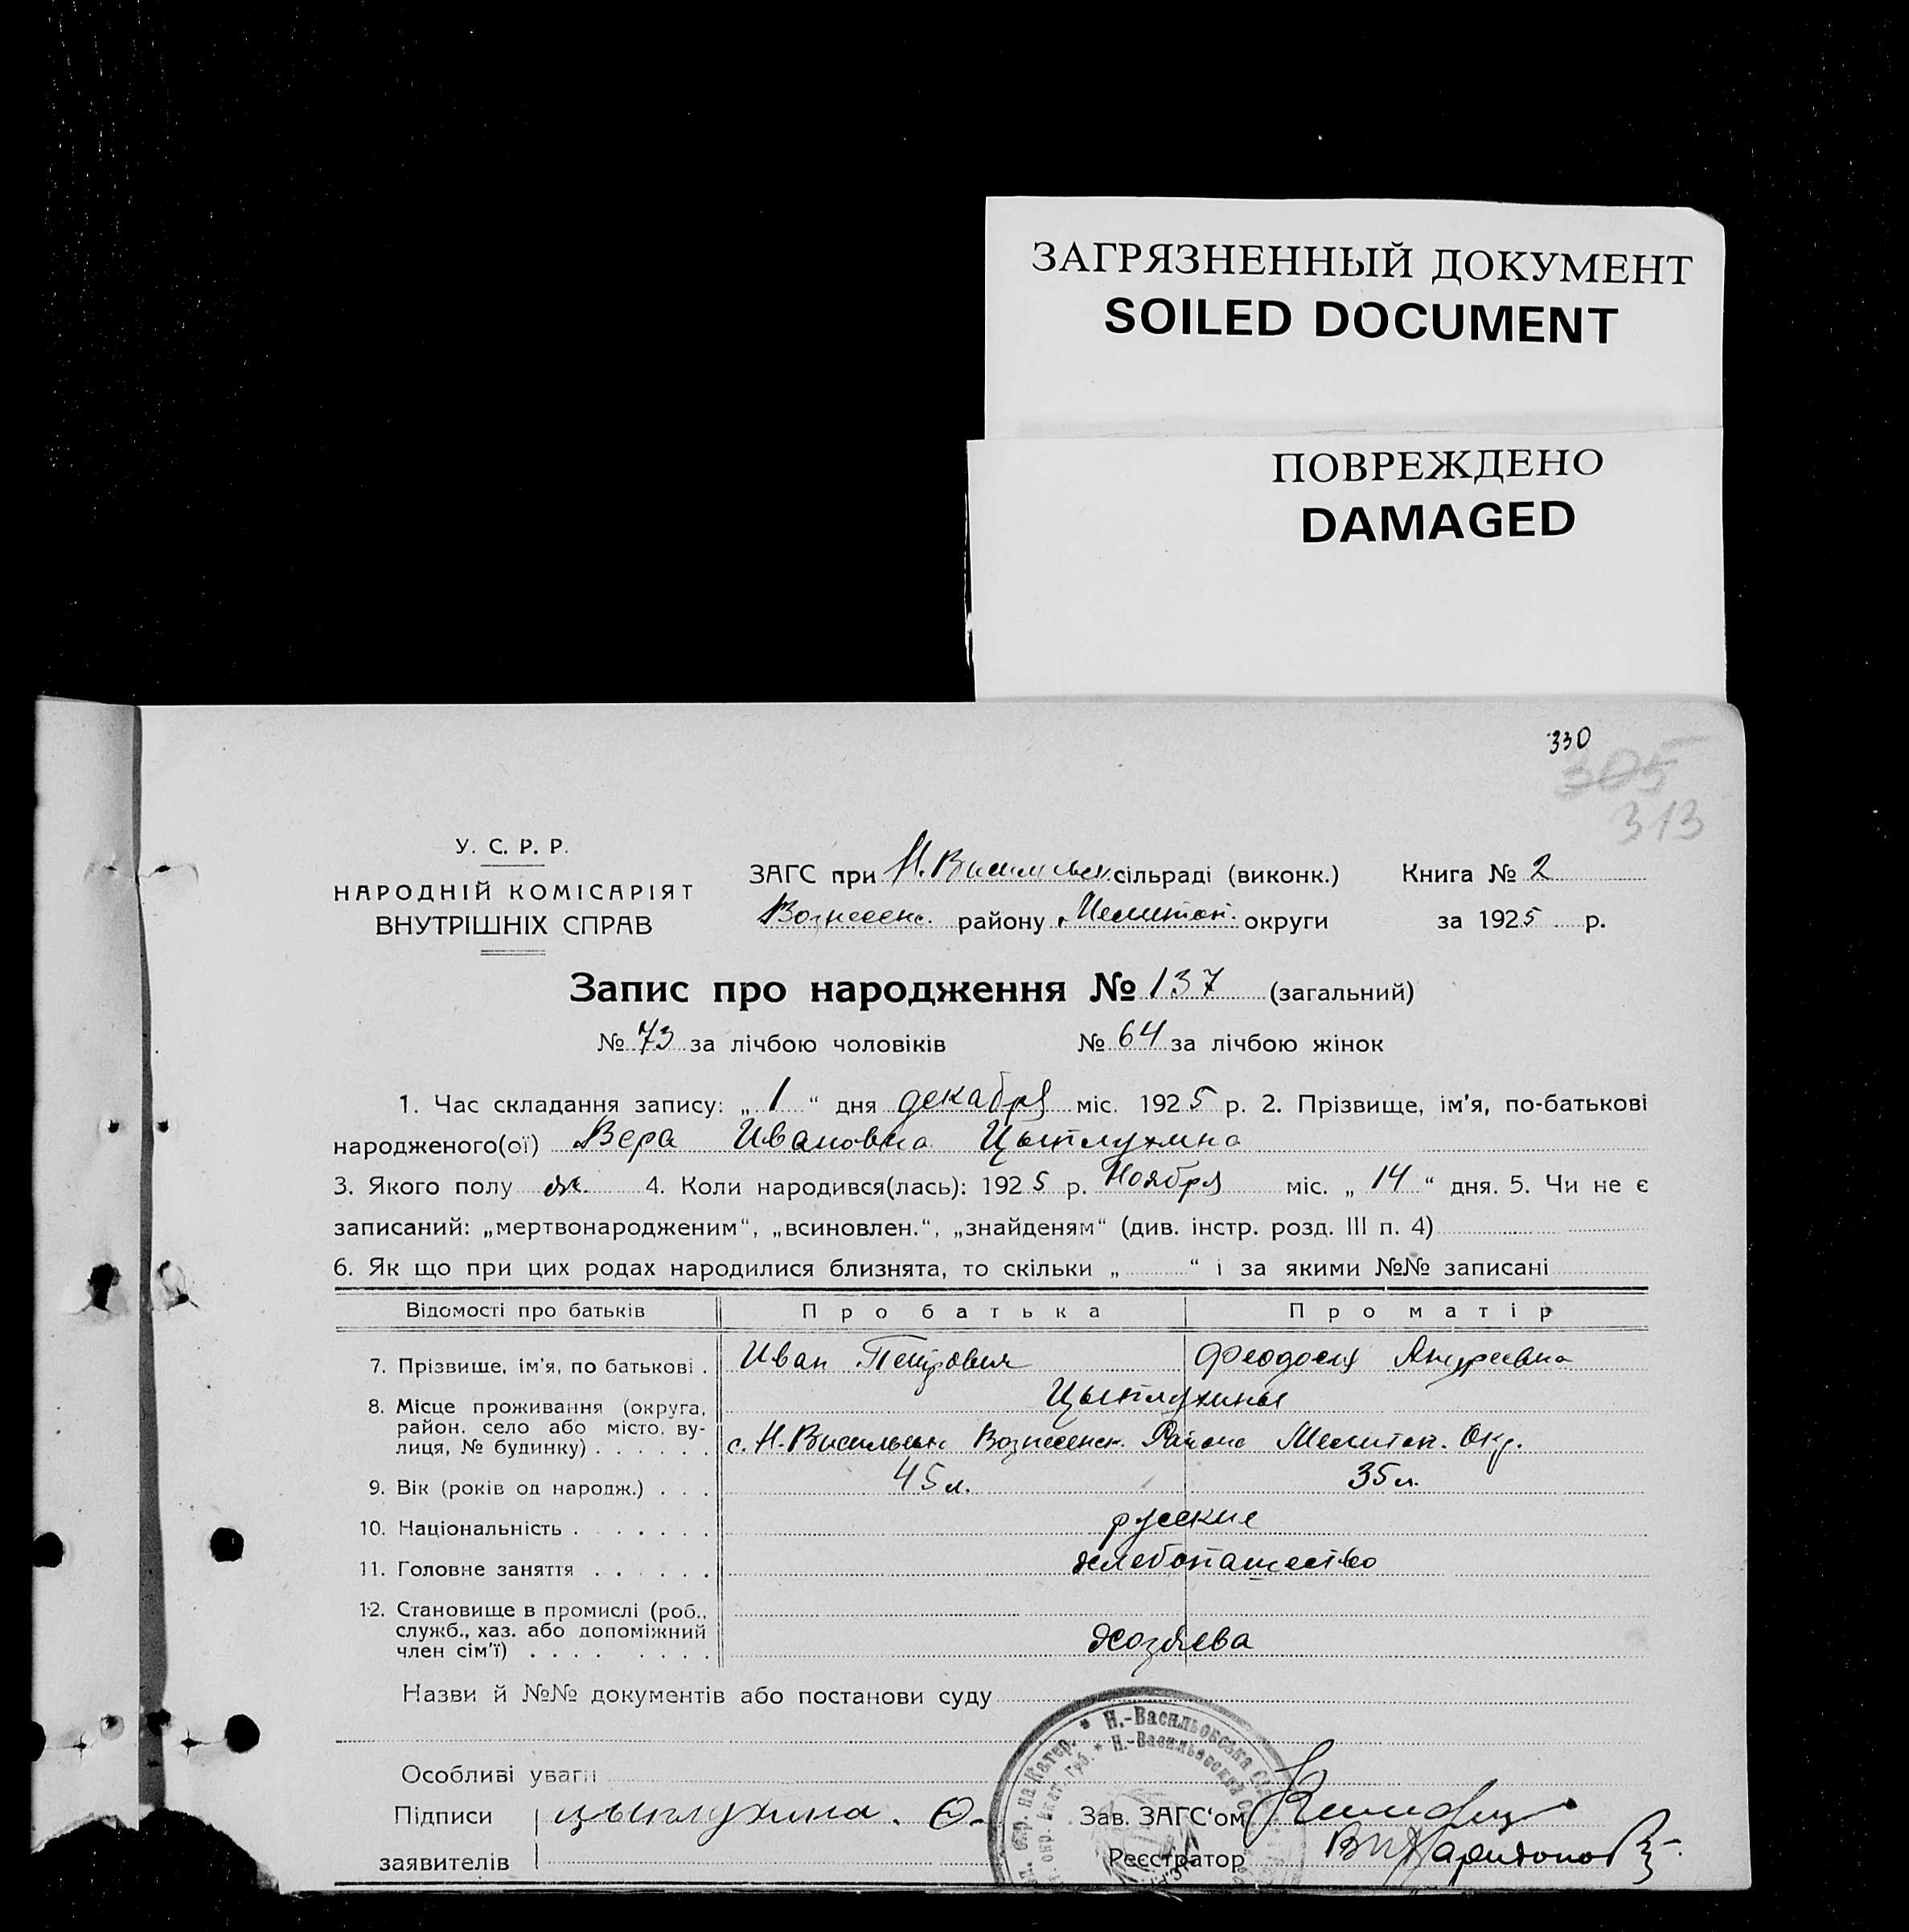 ЗАГРЯЗНЕННЫЙ ДОКУМЕНТ
SOILED DOCUMENT
ПОВРЕЖДЕНО
DAMAGED
330
305
313
У. С. Р. Р.
НАРОДНІЙ КОМІСАРІЯТ
ВНУТРІШНІХ СПРАВ
ЗАГС при Н. Васильев. сільраді (виконк.) Книга № 2
Вознесенс. району Мелитоп. округи за 1925 р.
Запис про народження № 137 (загальний)
№ 73 за лічбою чоловіків № 64 за лічбою жінок
1. Час складання запису: „ 1 “ дня декабря міс. 1925 р. 2. Прізвище, ім'я, по-батькові
народженого(ої) Вера Ивановна Цыплухина
3. Якого полу ж. 4. Коли народився(лась): 1925 р. Ноября міс. „ 14 “ дня. 5. Чи не є
записаний: „мертвонародженим“, „всиновлен.“, „знайденям“ (див. інстр. розд. III п. 4)
6. Як що при цих родах народилися близнята, то скільки „ “ і за якими №№ записані
Відомості про батьків Про батька Про матір
7. Прізвище, ім'я, по батькові . Иван Петрович Феодосия Андреевна
Цыплухины
8. Місце проживання (округа,
район, село або місто, ву-
лиця, № будинку) . . . . . . с. Н-Васильевк Вознесенск. Района Мелитоп. Окр.
9. Вік (років од народж.) . . . 45 л. 35 л.
10. Національність . . . . . . . русские
11. Головне заняття . . . . . . хлебопашество
12. Становище в промислі (роб.,
служб., хаз. або допоміжний
член сім'ї) . . . . . . . . хозяева
Назви й №№ документів або постанови суду
Н.-Васильовська
Н.-Васильевский
Особливі уваги
Підписи цыплухина. Ф. Зав. ЗАГС'ом
заявителів Реєстратор